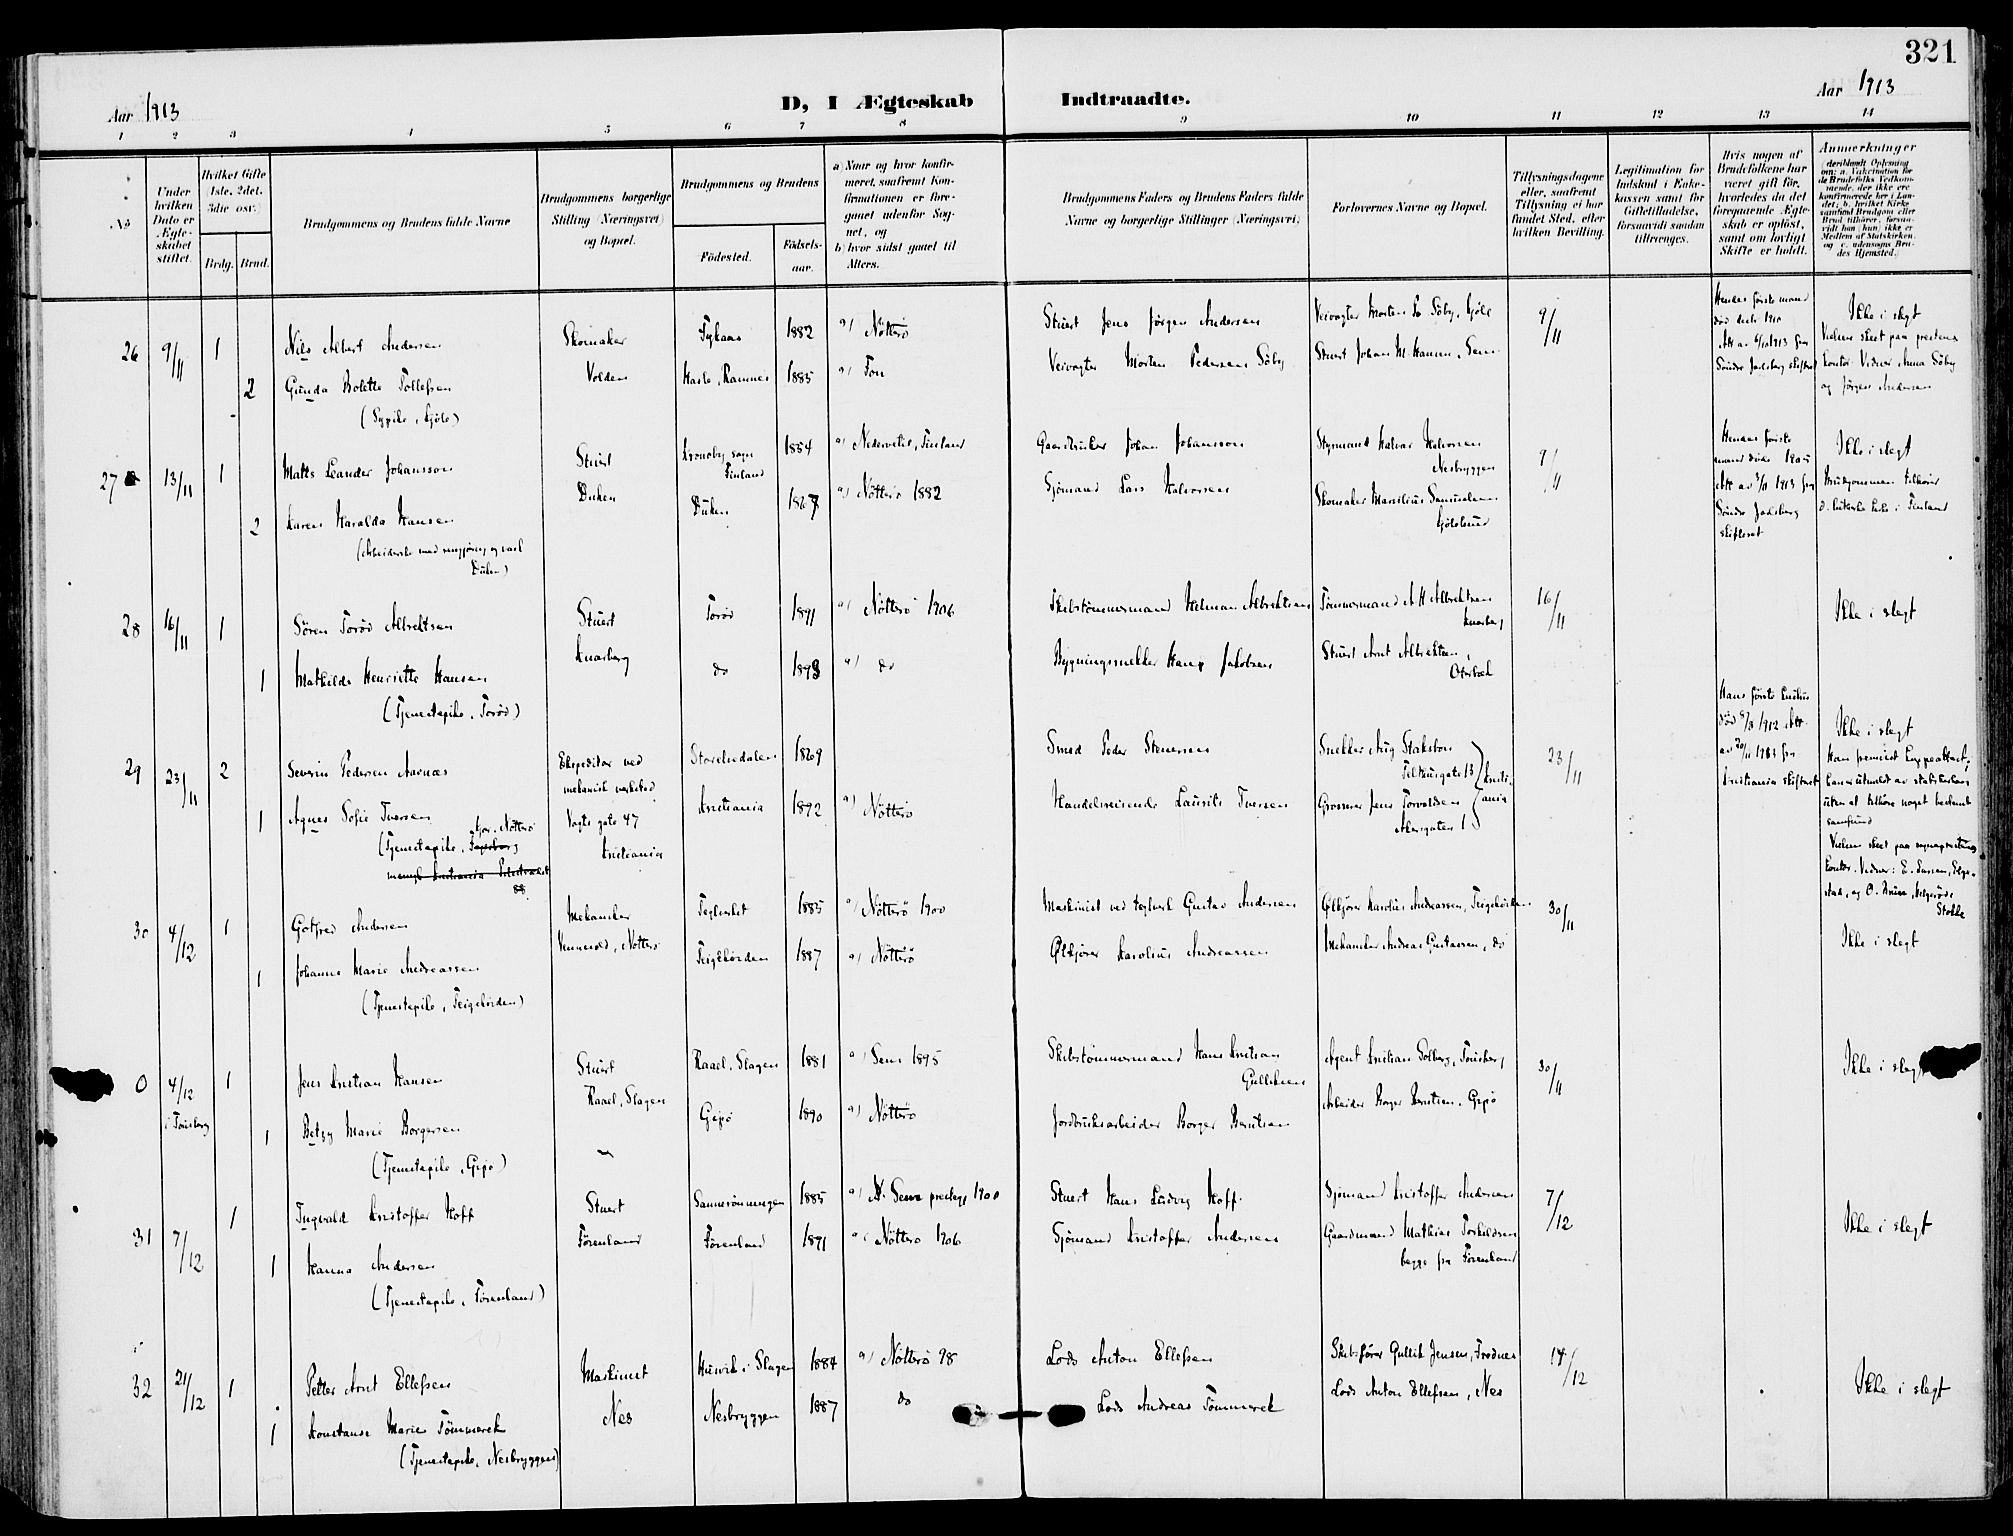 321
Aar 1913
D, I Ægteskab Indtraadte.
Aar 1913
1 2 3 4 5 6 7 8 9 10 11 12 13 14
No
Under hvilken Dato er Ægteskabet stiftet.
Hvilket Gifte (1ste, 2det, 3die osv.)
Brdg. Brud.
Brudgommens og Brudens fulde Navne
Brudgommens borgerlige Stilling (Næringsvei) og Bopæl.
Brudgommens og Brudens
Fødested. Fødselsaar.
a) Naar og hvor konfirmeret, saafremt Konfirmationen er foregaaet udenfor Sognet, og
b) hvor sidst gaaet til Alters.
Brudgommens Faders og Brudens Faders fulde Navne og borgerlige Stillinger (Næringsvei)
Forlovernes Navne og Bopæl.
Tillysningsdagene eller, saafremt Tillysning ei har fundet Sted, efter hvilken Bevilling.
Legitimation for Indskud i Enkekassen samt for Giftetilladelse, forsaavidt saadan tiltrænges.
Hvis nogen af Brudefolkene har været gift før, hvorledes da det foregaaende Ægteskab er opløst, samt om lovligt Skifte er holdt.
Anmærkninger (deriblandt Oplysning om: a. Vakcination for de Brudefolks Vedkommende, der ikke ere konfirmerede her i Landet; b. hvilket Kirkesamfund Brudgom eller Brud tilhører, forsaavidt han (hun) ikke er Medlem af Statskirken, og c. udensogns Brudes Hjemsted.)
26 9/11 1 Nils Albert Andersen Skomaker 1882 a) Nøtterø Stuert Jens Jørgen Andersen Veivogter Morten P. Søby, Kjøle 9/11
Hendes første mand død 1910 Att av 6/10 1913 fra Søndre Jarlsberg skifteret
Ikke i slegt
Vielsen skeet paa prestens kontor. Vidner Anna Søby og Jørgen Andersen
2 Gunda Bolette Tollefsen Volden Ramnes 1885 a) Fon Veivogter Morten Pedersen Søby Stuert Johan M. Hansen, Sem
(Sypike, Kjøle)
27 13/11 1 Matts Leander Johansson Stuert Kronoby sogn Finland 1884 a) Nedervetil, Finland Gaardbruker Johan Johansson Styrmand Halvor Halvorsen Nesbryggen 9/11
Hendes første mand døde 1905 Att av 3/11 1913 fra Søndre Jarlsberg skifteret
Ikke i slegt
Brudgommen tilhører d. luterske kirke i Finland
2 Karen Haralda Hansen Duken Duken 1867 a) Nøtterø 1882 Sjømand Lars Halvorsen Skomaker Marcilius Samuelsen
(Arbeiderske med rengjøring og vask Duken)
28 16/11 1 Søren Torød Albrektsen Stuert Torød 1891 a) Nøtterø 1906 Skibstømmermand Herman Albrektsen Tømmermand A H Albrektsen Knarberg 16/11 Ikke i slegt
1 Mathilde Henriette Hansen Knarberg do 1893 a) do Bygningssnekker Hans Jakobsen Stuert Arnt Albrektsen, Oterbæk
(Tjenestepike, Torød)
29 23/11 2 Severin Pedersen Aarnæs Ekspeditør ved mekanisk verksted Storelvedalen 1869 Smed Peder Stenersen Snekker Aug Stakston Filtvetgate 13 23/11
Hans første hustru død 1912 Att av 20/11 1913 fra Kristiania skifteret
Ikke i slegt
Han er utmeldt av statskirken uten at tilhøre noget bestemt samfund
1 Agnes Sofie Iversen Vogts gate 47 Kristiania Kristiania 1892 a) Nøtterø Handelsreisende Laurits Iversen Grosserer Jens Torvaldsen Akersgaten 1 Kristiania
(Tjenestepike, Nøtterø
Vielsen skeet paa sogneprestens kontor. Vidner: E. Larsen, Elgestad, og O. Bruse, Helgerød, Stokke
30 4/12 1 Gotfred Andersen Mekaniker Teglverket 1885 a) Nøtterø 1900 Maskinist ved teglverk Gustav Andersen Ølkjører Karolius Andreassen, Teigehørden 30/11 Ikke i slegt
1 Johanne Marie Andreassen Vennerød, Nøtterø Teigehørden 1887 a) Nøtterø Ølkjører Karolius Andreassen Mekaniker Andreas Gustavsen, do
(Tjenestepike, Teigehørden)
0 4/12 i Tønsberg 1 Jens Kristian Hansen Stuert Raael, Slagen Raael, Slagen 1881 a) Sem 1895 Skibstømmermand Hans Kristian Gulliksen Agent Kristian Solberg, Tønsberg 30/11 Ikke i slegt
1 Betzy Marie Borgersen Gipø 1890 a) Nøtterø Jordbruksarbeider Borger Berntsen Arbeider Borger Berntsen, Gipø
(Tjenestepike, Gipø)
31 7/12 1 Ingvald Kristoffer Hoff Stuert Sannerønningen 1885 a) Sem prestegj 1900 Stuert Hans Ludvig Hoff Sjømand Kristoffer Andersen 7/12 Ikke i slegt
1 Hanna Andersen Førenland Førenland 1891 a) Nøtterø 1906 Sjømand Kristoffer Andersen Gaardmand Mathias Torkildsen begge fra Førenland
(Tjenestepike, Førenland)
32 21/12 1 Petter Arnt Ellefsen Maskinist Husvik i Slagen 1884 a) Nøtterø 98 Lods Anton Ellefsen Skibsfører Gullik Jensen, Frednes 14/12 Ikke i slegt
1 Konstanse Marie Tømmerek Nes Nesbryggen 1887 do Lods Andreas Tømmerek Lods Anton Ellefsen, Nes
(Tjenestepike, Nesbryggen)